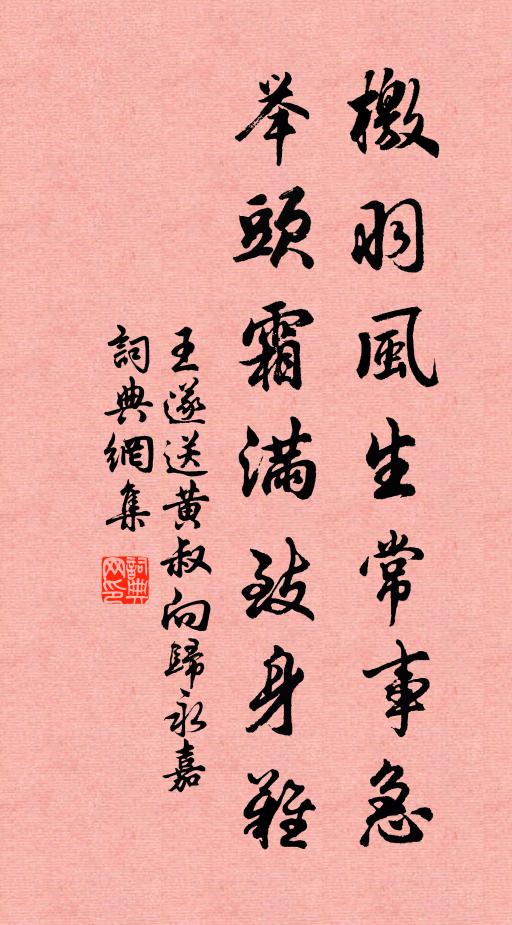 檄羽風生常事急
举頭霜滿致身難
王遂送黄叔向歸永嘉
詞典網集
詞典网印